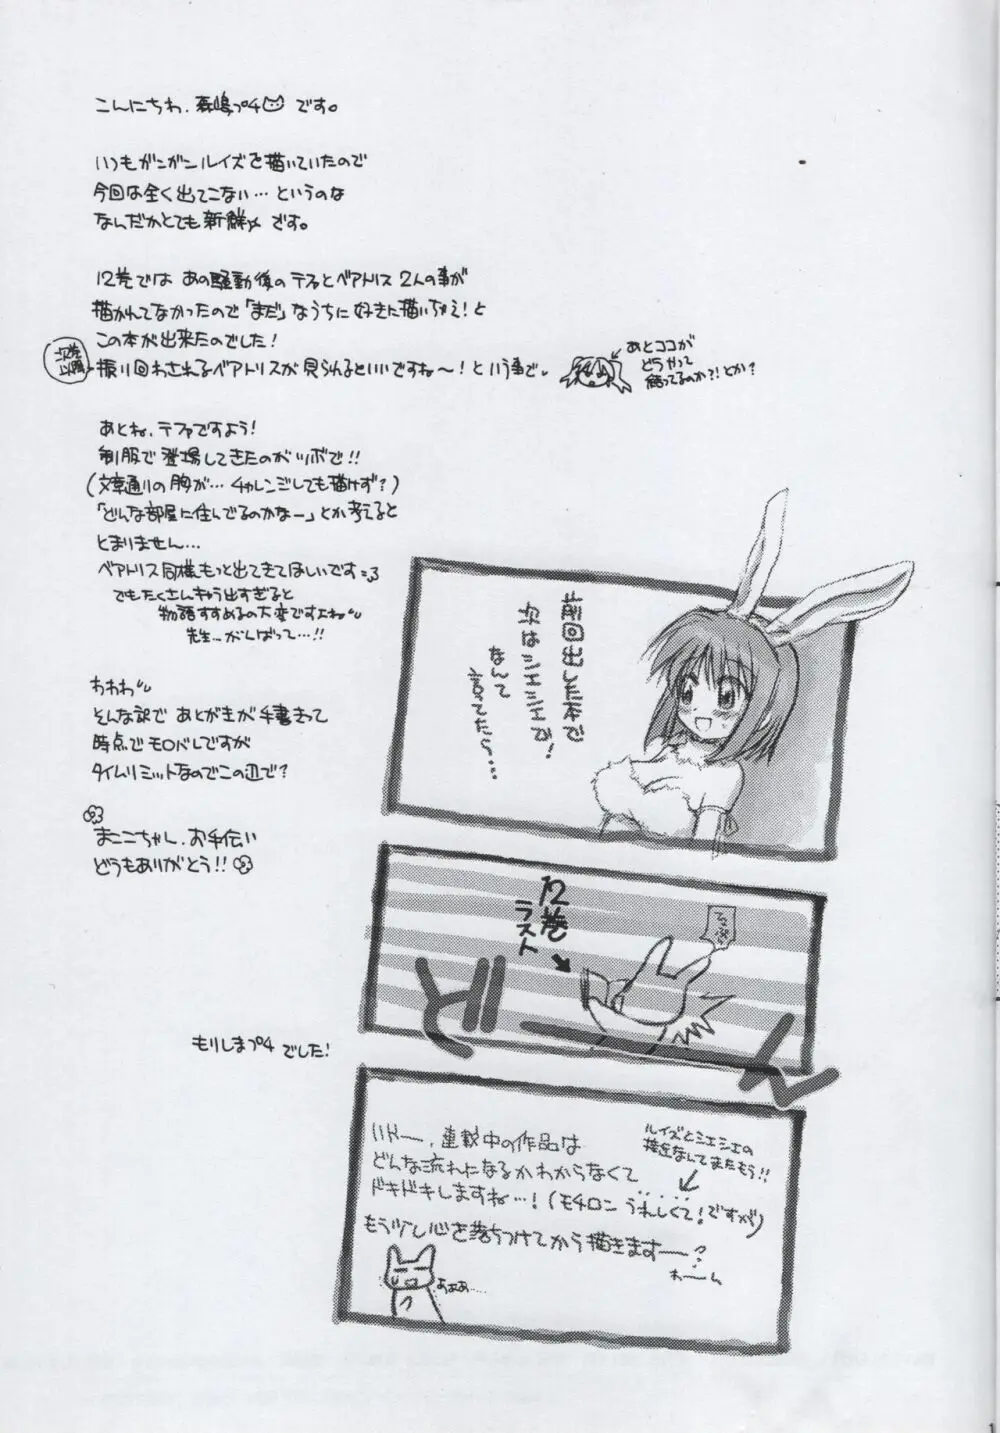 こんにちわ、森嶋プチです。
いつもガンガンルイズを描いていたので
今回は全く出てこない…というのな
なんだかとても新鮮〆です。
12巻では あの騒動後のテファとベアトリス 2人の事が
描かれてなかったので「まだ」なうちに好きに描いちゃえ!と
この本が出来たのでした!
次巻
以降
振り回わされるベアトリスが見られるといいですね〜!という事で。
あとココが
どうやって
結ってるのか?!とか?
あとね、テファですよう!
制服で登場してきたのがツボで!!
(文章通りの胸が…チャレンジしても描けず?)
「どんな部屋に住んでるのかなー」とか考えると
とまりません…
ベアトリス同様もっと出てきてほしいです
でもたくさんキャラ出すぎると
物語すすめるの大変ですよね
先生…がんばって…!!
わわわ
そんな訳で あとがきが手書きって
時点でモロバレですが
タイムリミットなのでこの辺で?
まここちゃん、お手伝い
どうもありがとう!!
もりしまプチ でした!
前回出した本で
次はシエシエで!
なんて
言てたら…
12巻
ラスト
ドドーン
いやー、連載中の作品は
どんな流れになるかわからなくて
ドキドキしますね…!(モチロン うれしくて!ですが)
もう少し心を落ちつけてから描きますー?
わーん
ルイズとシエシエの
接近なんてまたもう!!
あぁぁ……